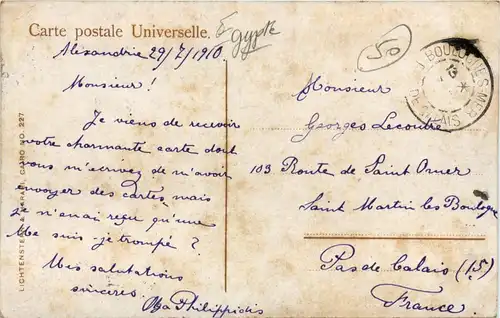 Carte postale Universelle.
Egypte
50
Alexandrie 29/7/1910.
Monsieur!
Je viens de recevoir
votre charmante carte dont
vous m'ecrivez de n'avoir
envoyer des cartes, mais
je n'en ai reçu qu'une
Me suis-je trompé?
Mes salutations
sincères
Philippidis
Monsieur
Georges Lecontre
103 Route de Saint Omer
Saint Martin les Boulogne
Pas de Calais (15)
France.
BOULOGNE S MER
PAS DE CALAIS
CAIRO NO. 227